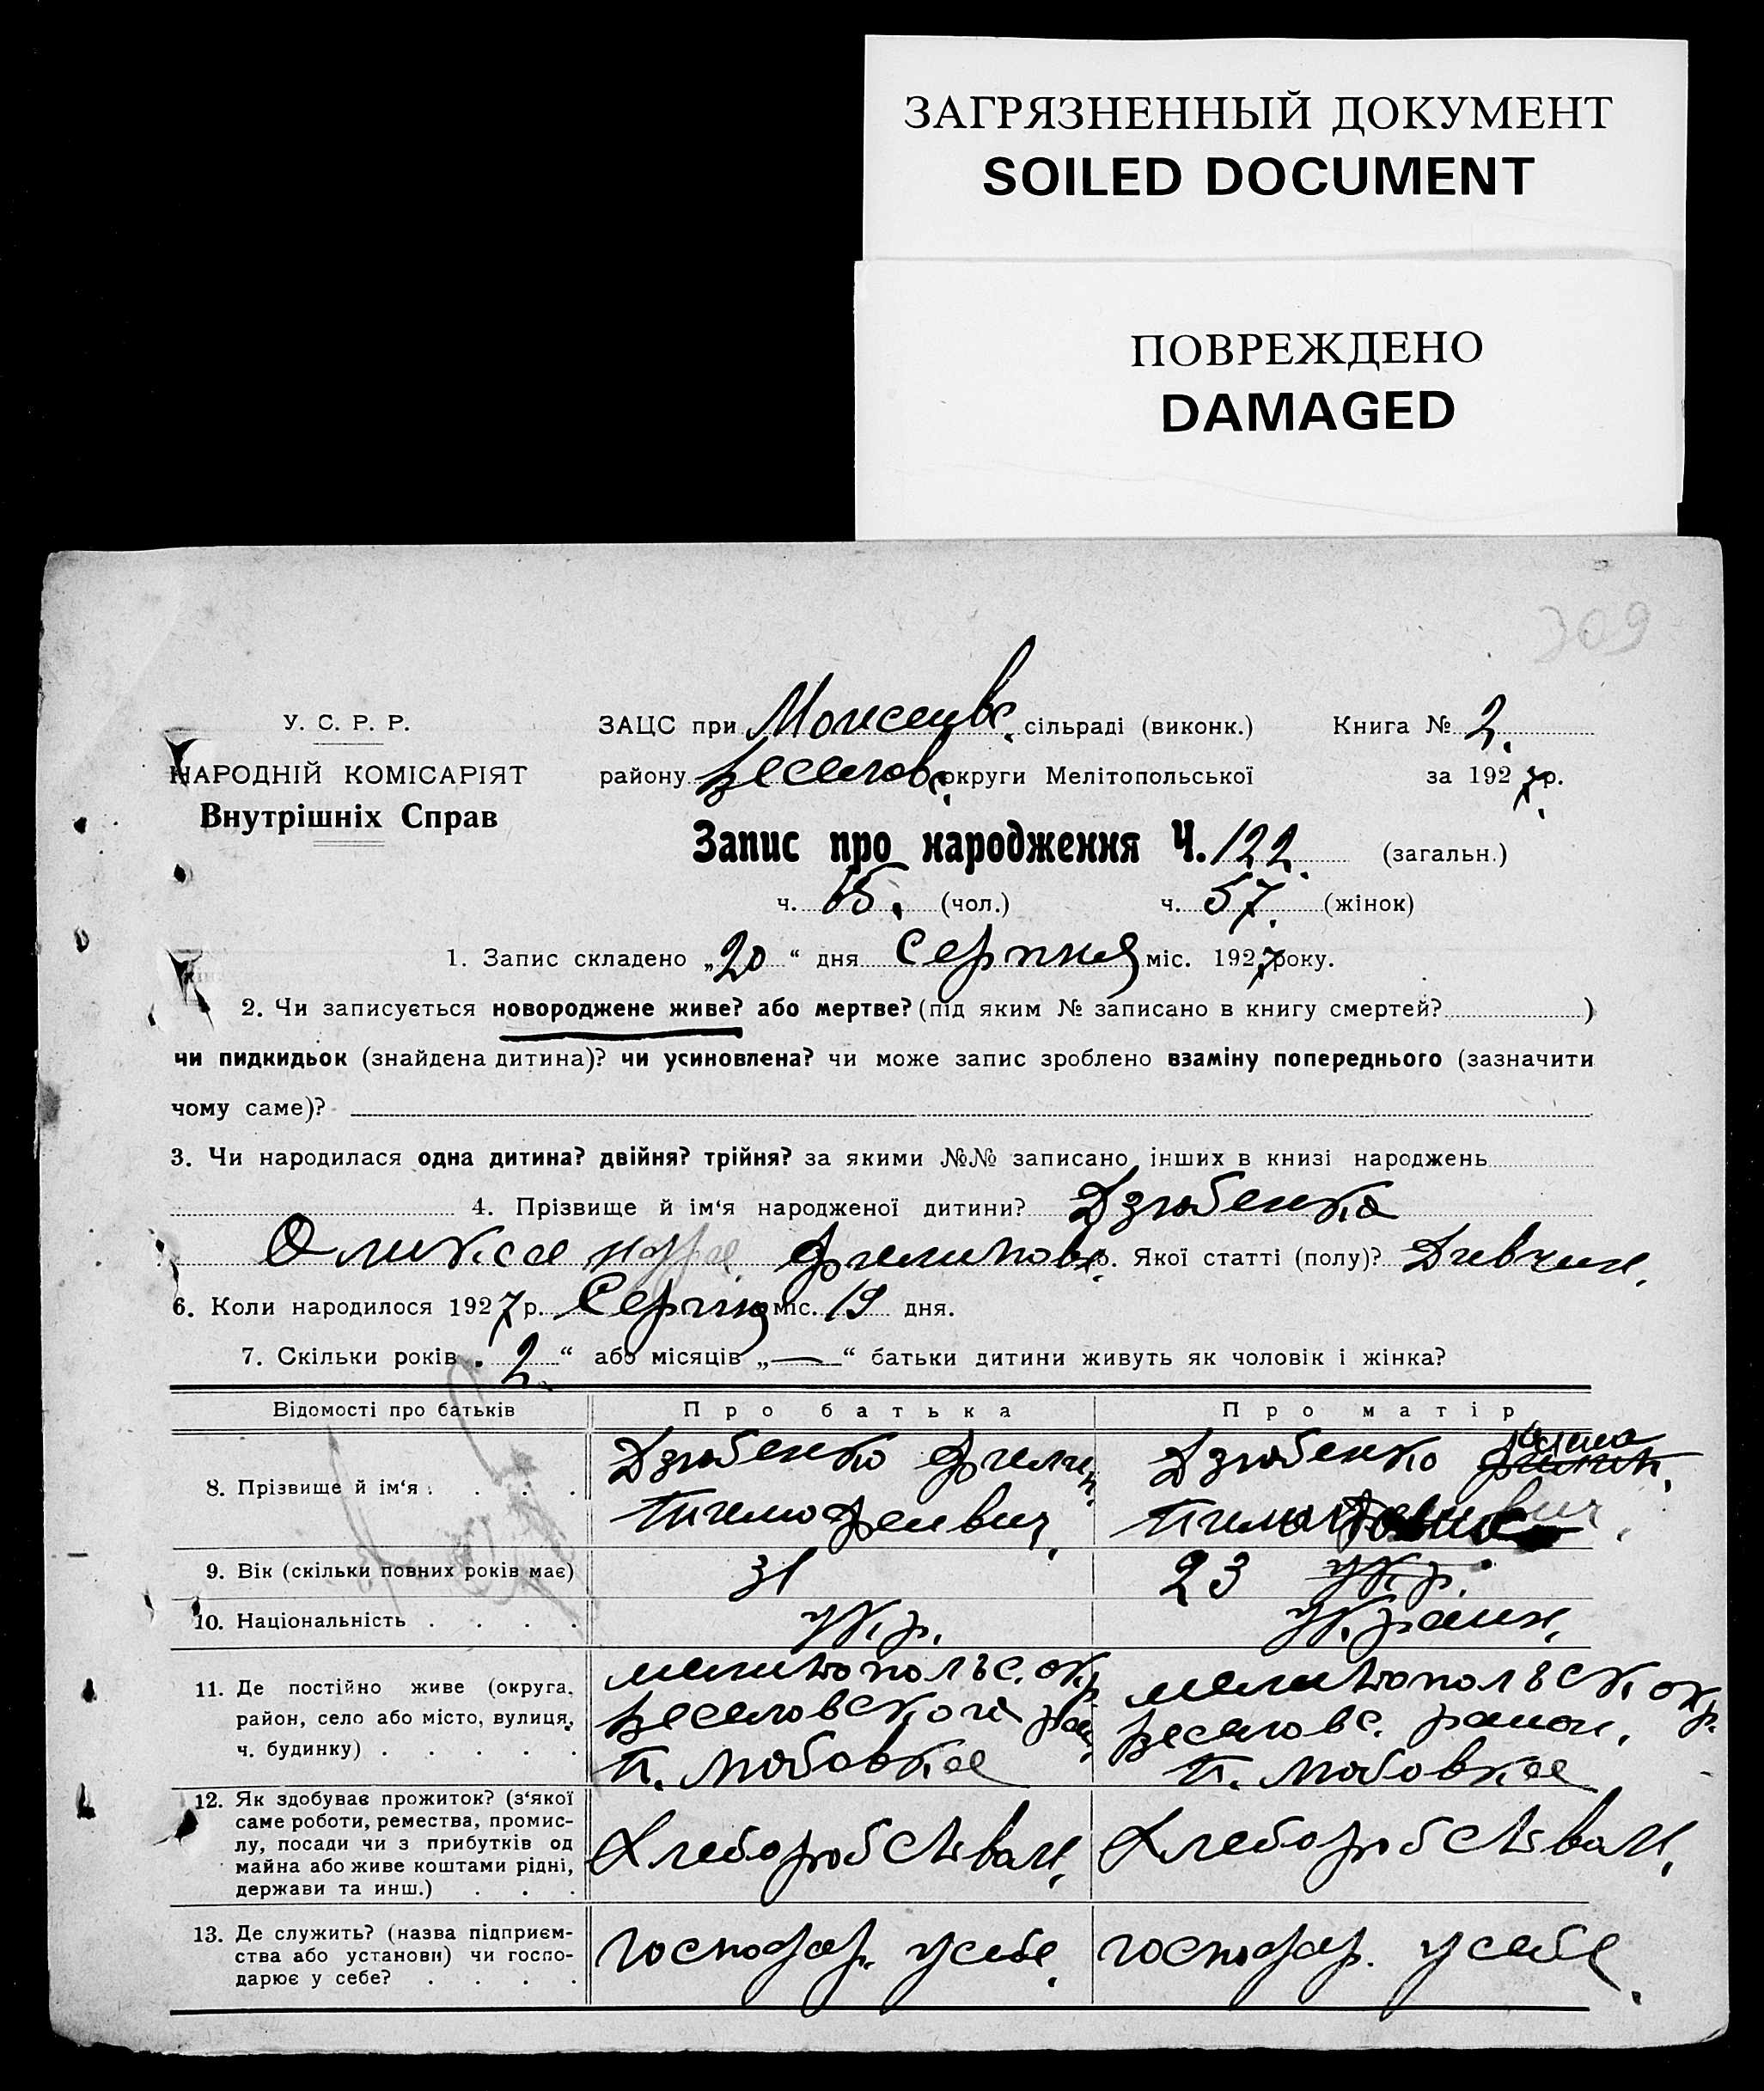 ЗАГРЯЗНЕННЫЙ ДОКУМЕНТ
SOILED DOCUMENT
ПОВРЕЖДЕНО
DAMAGED
309
У. С. Р. Р.
НАРОДНІЙ КОМІСАРІЯТ
Внутрішніх Справ
ЗАЦС при Моисеивс. сільраді (виконк.) Книга № 2.
району Веселовс. округи Мелітопольської за 1927 р.
Запис про народження Ч. 122. (загальн.)
ч. 65. (чол.) ч. 57. (жінок)
1. Запис складено „20“ дня Серпня міс. 1927 року.
2. Чи записується новороджене живе? або мертве? (під яким № записано в книгу смертей? )
чи пидкидьок (знайдена дитина)? чи усиновлена? чи може запис зроблено взаміну попереднього (зазначити
чому саме)?
3. Чи народилася одна дитина? двійня? трійня? за якими №№ записано інших в книзі народжень
4. Прізвище й ім‘я народженої дитини? Дзюбенко
Филипов. 5. Якої статті (полу)? Дивчин.
6. Коли народилося 1927 р. Серпня міс. 19 дня.
7. Скільки років „2“ або місяців „—“ батьки дитини живуть як чоловік і жінка?
Відомості про батьків
Про батька
Про матір
8. Прізвище й ім‘я . . . .
Дзюбенко Филип.
Тимофеевич,
Дзюбенко
9. Вік (скільки повних років має)
31
23 укр.
10. Національність . . . .
укр.
Украин.
11. Де постійно живе (округа, район, село або місто, вулиця, ч. будинку) . . . . .
мелитопольс. окр.
Веселовского рай.
п. Любовка
мелитопольск окр.
Веселовс. район.
п. Любовка
12. Як здобуває прожиток? (з‘якої саме роботи, ремества, промислу, посади чи з прибутків од майна або живе коштами рідні, держави та инш.) . . .
Хлеборобствам,
Хлеборобствам,
13. Де служить? (назва підприємства або установи) чи господарює у себе? . . . .
господар. усебе.
господар. усебе.